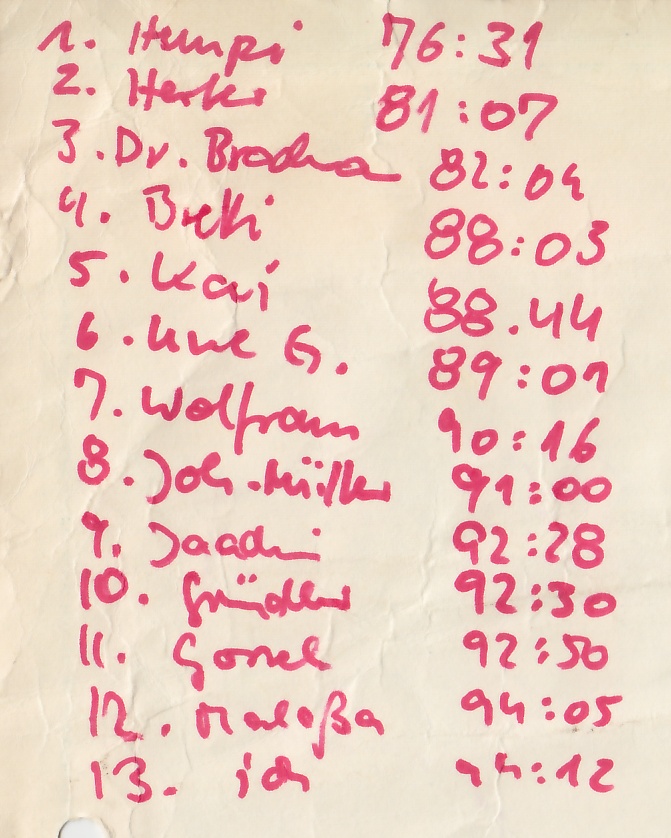 1. Humpi 76:31
2. 81:07
3. Dr. 82:04
4. 88:03
5. Kai 88.44
6. Uwe G. 89:01
7. Wolfram 90:16
8. Joh. Müller 91:00
9. 92:28
10. Gründler 92:30
11. 92:50
12. 94:05
13. ich 94:12